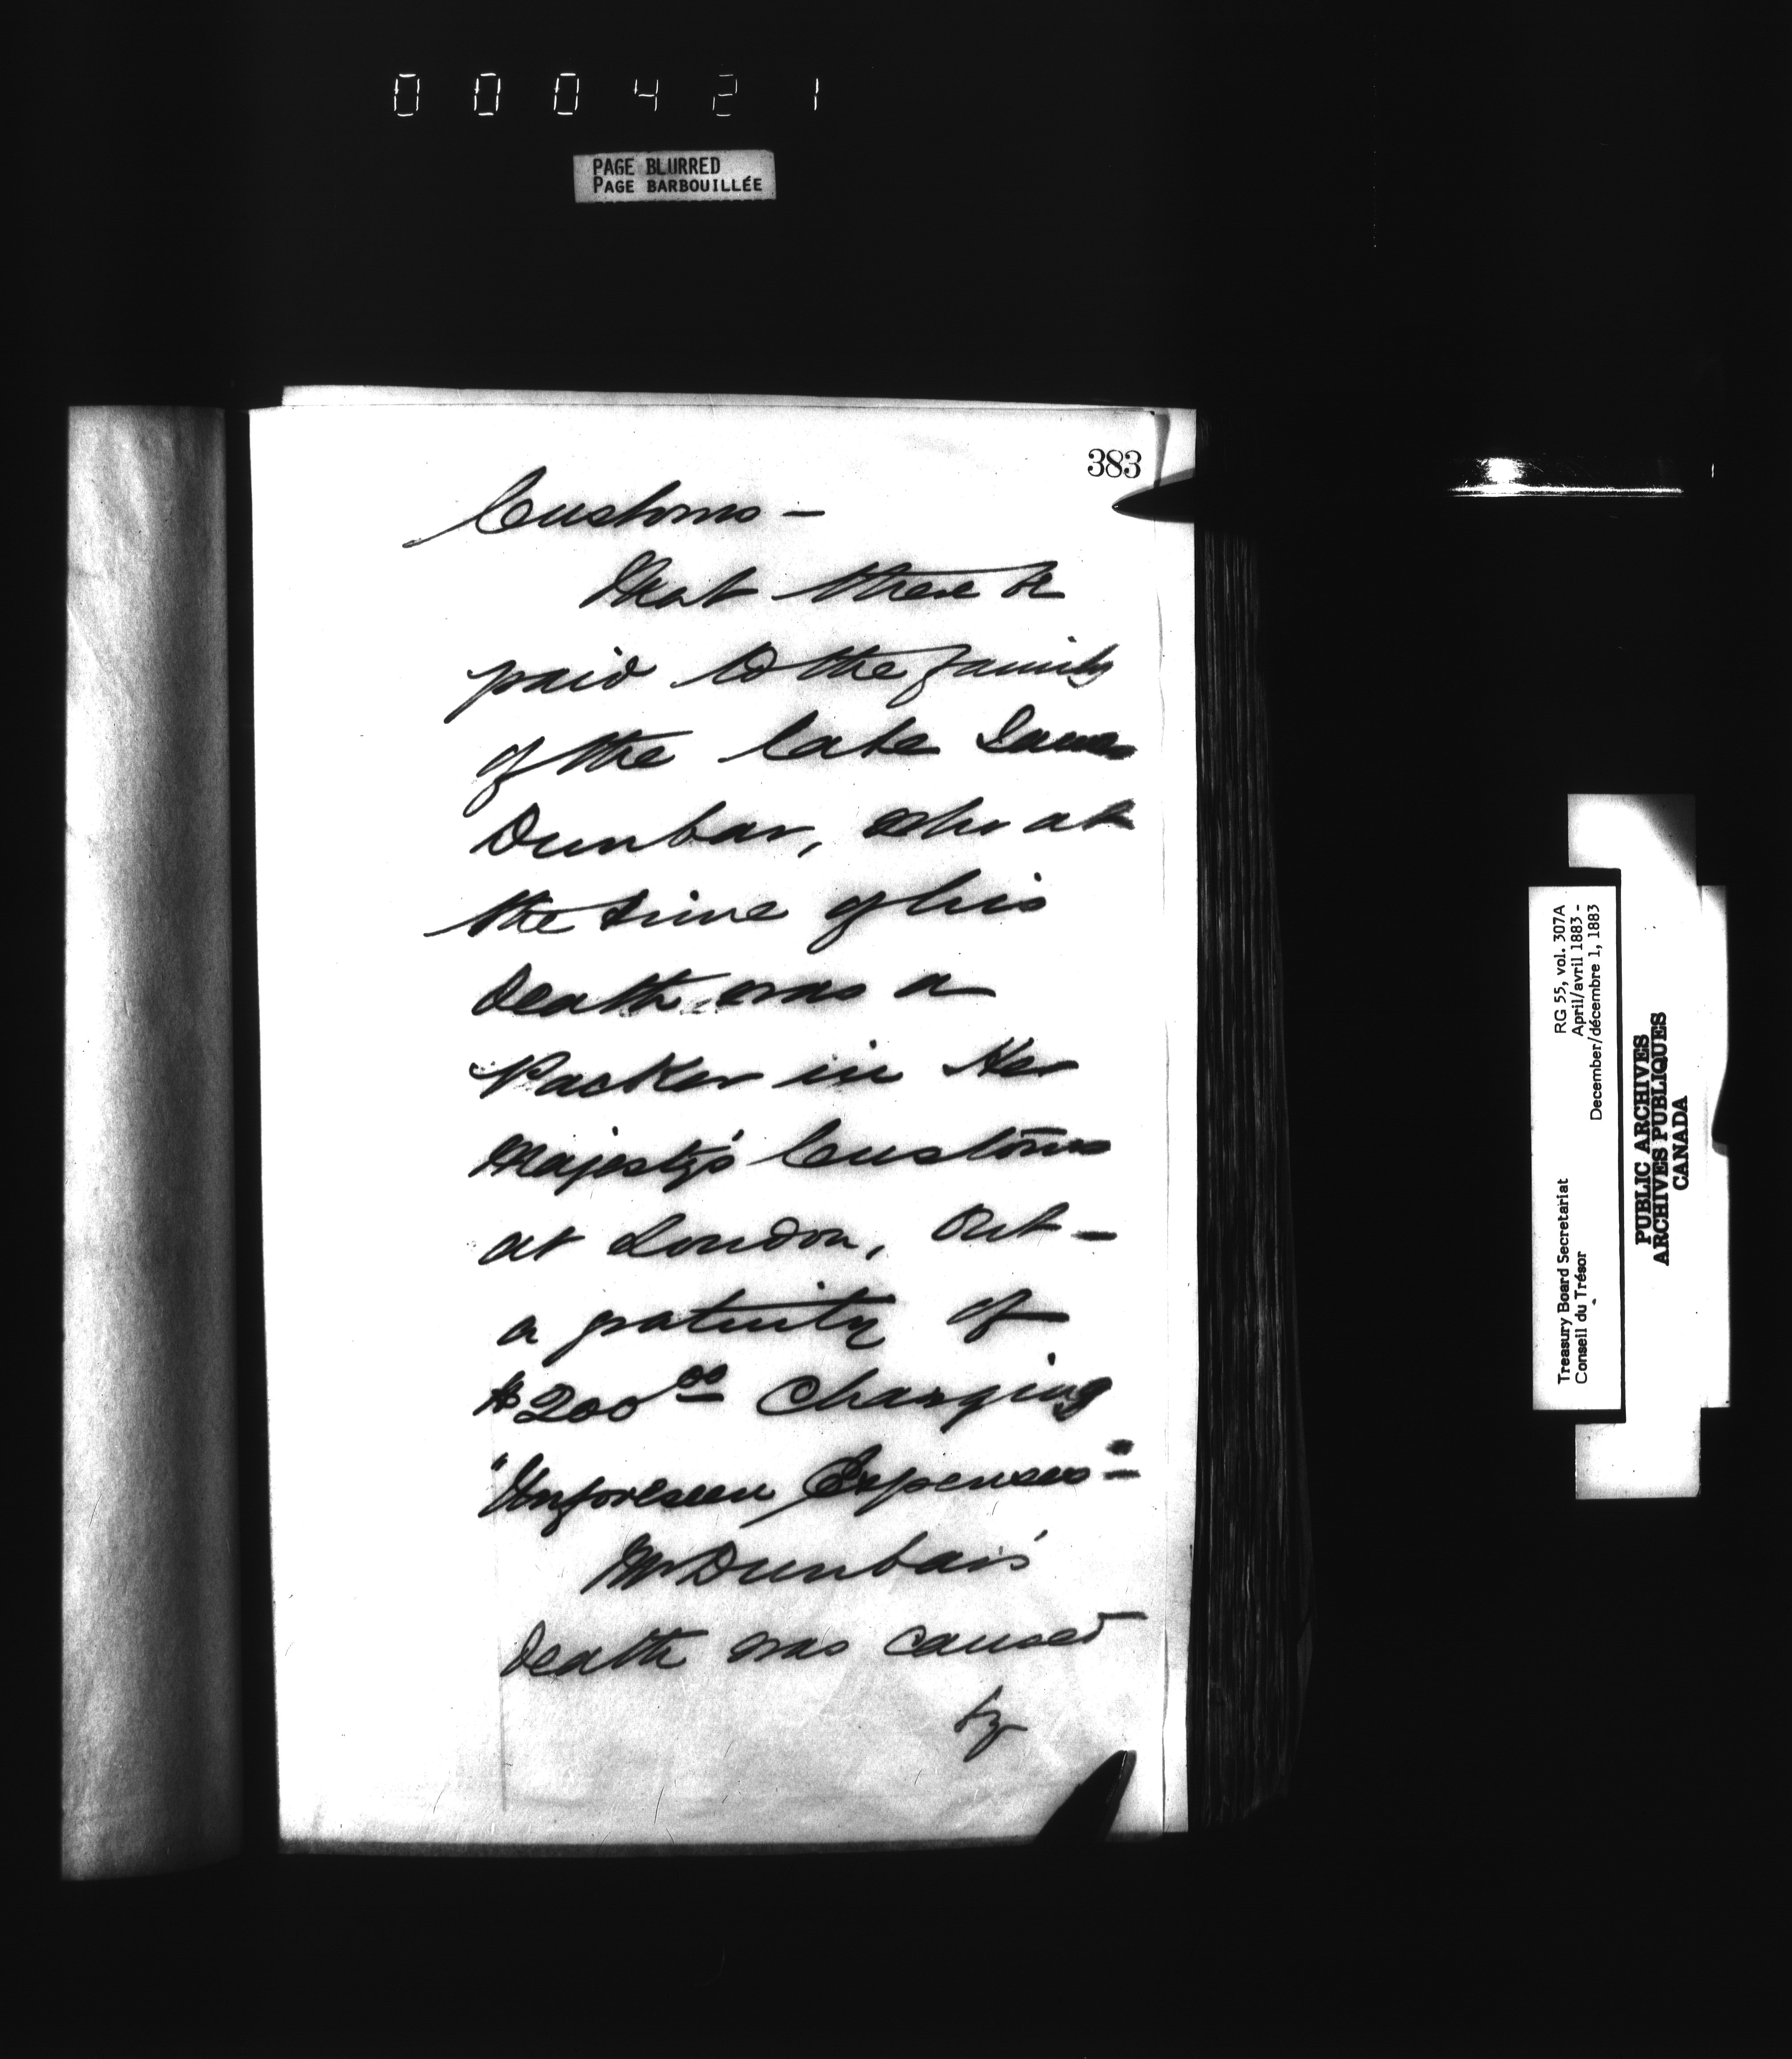 000421
PAGE BLURRED
PAGE BARBOUILLÉE
383
Customs —
That there be
paid to the family
of the late James
Dunbar, who at
the time of his
death was a
Packer in Her
Majesty's Customs
at London, Ont —
a gratuity of
$200 00 Charging
"Unforeseen Expenses" —
Mr Dunbar's
death was caused
by
Treasury Board Secretariat RG 55, vol. 307A
Conseil du Trésor April/avril 1883 -
December/décembre 1, 1883
PUBLIC ARCHIVES
ARCHIVES PUBLIQUES
CANADA